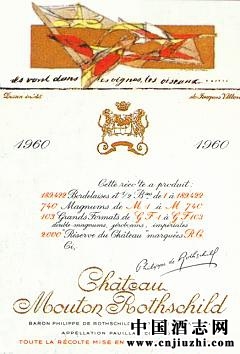 ils vont dans les vignes, les oiseaux......
Dessin inédit de Jacques Villon
1960 1960
Cette récolte a produit:
189422 Bordelaises et 1/2 Btes de 1 à 189422
740 Magnums de M 1 à M 740
103 Grands Formats de G F 1 à G F 103
double magnums, jéroboams, impériales
2000 Réserve du Château marquées R.C.
Ci,
Philippe de Rothschild
Château
Mouton Rothschild
BARON PHILIPPE DE ROTHSCHILD
APPELLATION PAUILLAC
TOUTE LA RÉCOLTE MISE EN
中国酒志网
www.cnjiuzhi.com